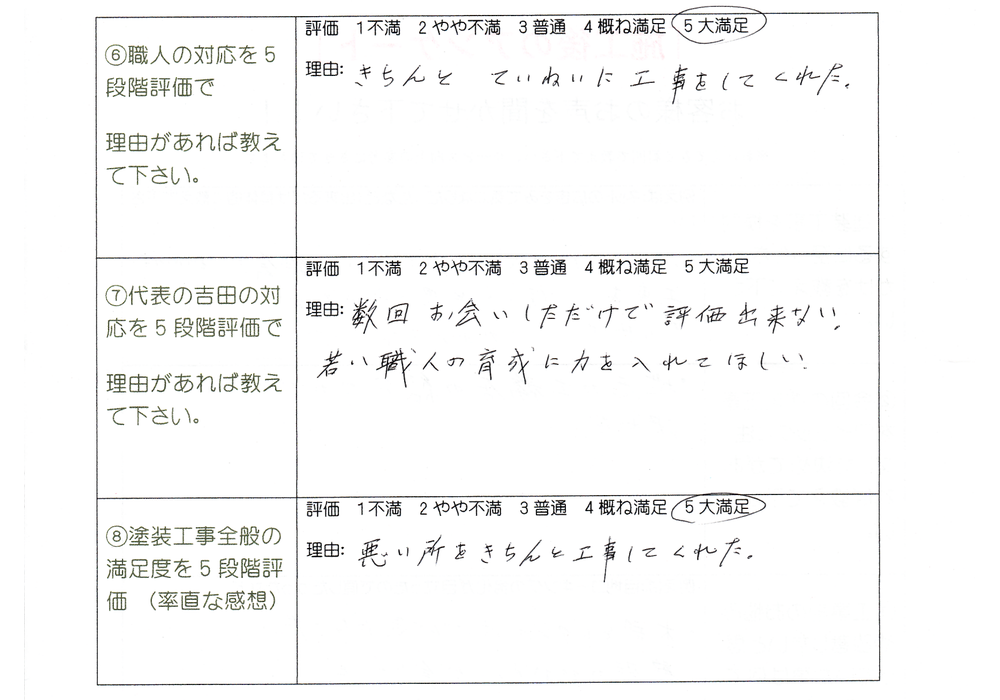 ⑥職人の対応を5
段階評価で
理由があれば教え
て下さい。
評価 1不満 2やや不満 3普通 4概ね満足 5大満足
理由: きちんと ていねいに工事をしてくれた。
⑦代表の吉田の対
応を5段階評価で
理由があれば教え
て下さい。
評価 1不満 2やや不満 3普通 4概ね満足 5大満足
理由: 数回お会いしただけで評価出来ない。
若い職人の育成に力を入れてほしい。
⑧塗装工事全般の
満足度を5段階評
価 (率直な感想)
評価 1不満 2やや不満 3普通 4概ね満足 5大満足
理由: 悪い所をきちんと工事してくれた。